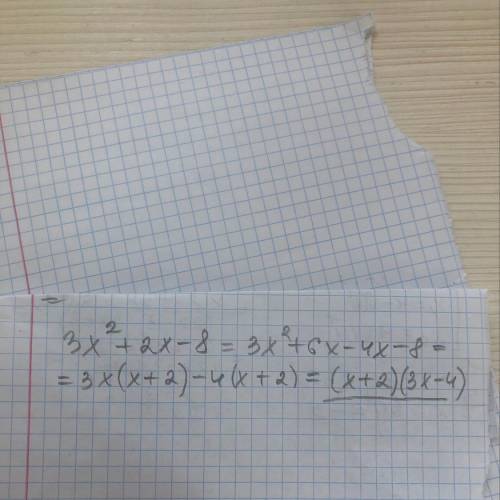 =
3x²+2x-8 = 3x²+6x-4x-8 =
= 3x(x+2)-4(x+2) = (x+2)(3x-4)